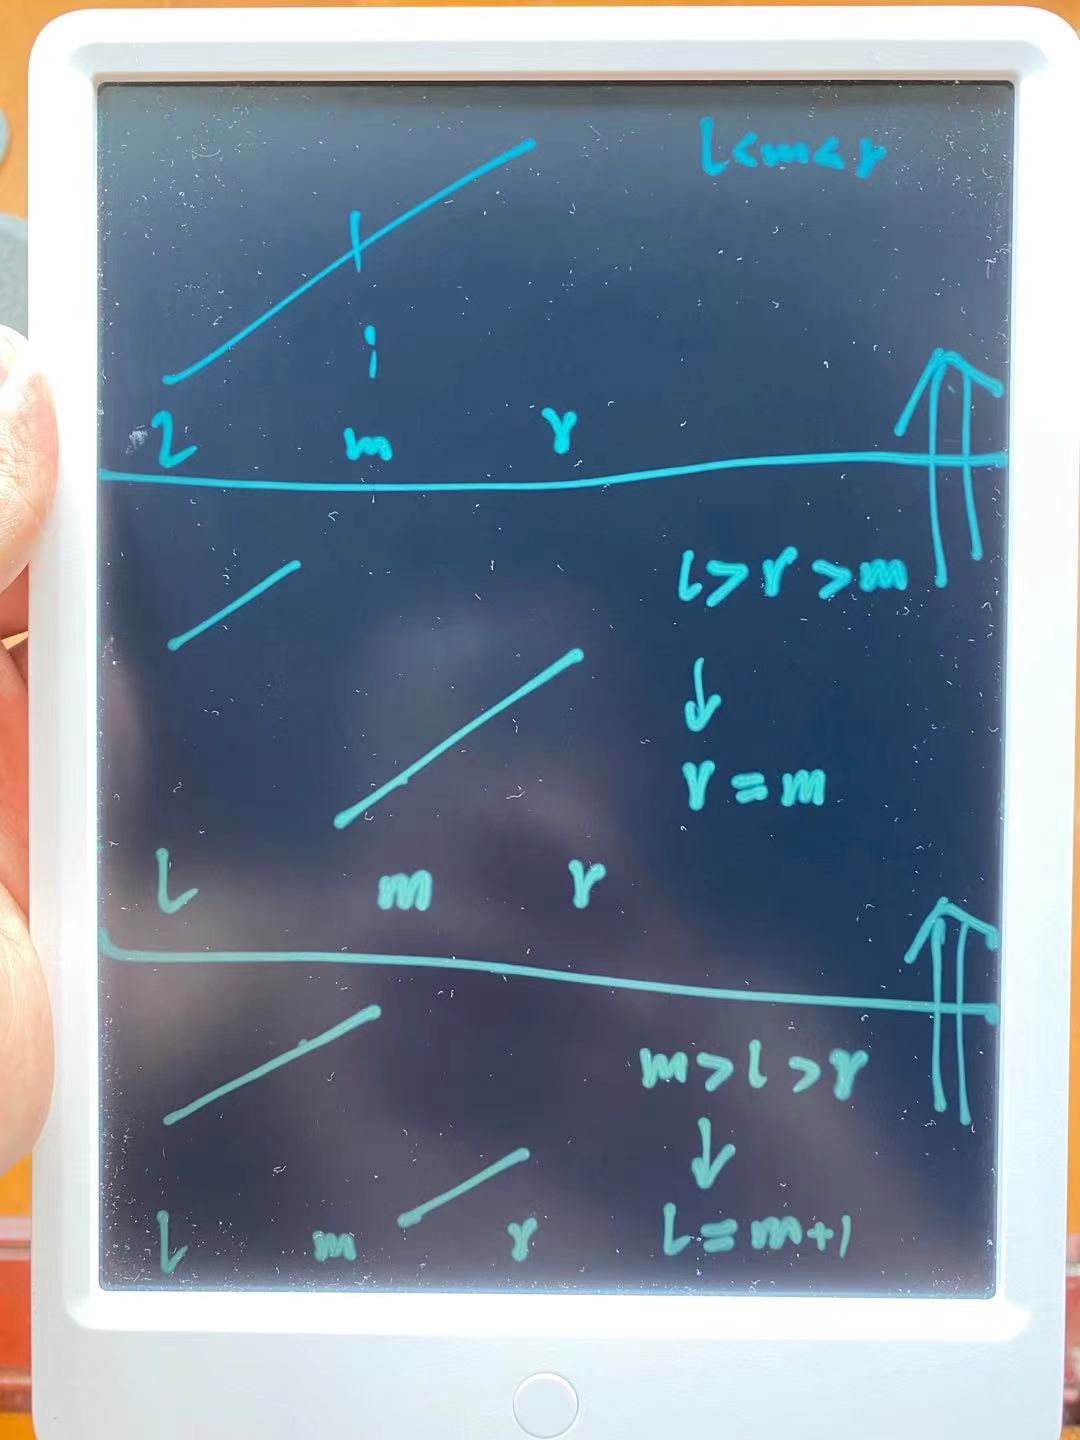 l<m<r
i
l m r
l>r>m
↓
r=m
l m r
m>l>r
↓
l=m+1
l m r